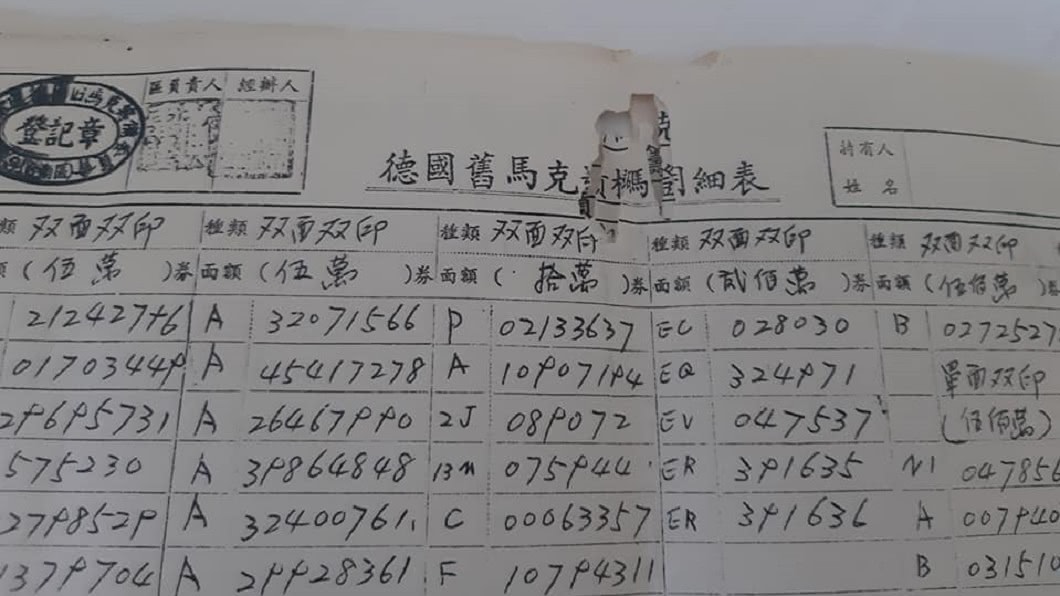 區負責人 經辦人
登記章
德國舊馬克 劃細表
持有人
姓 名
類 双面双印 種類 双面双印 種類 双面双印 種類 双面双印 種類 双面双印
額(伍萬 )券 面額(伍萬 )券 面額( 拾萬 )券 面額(貳佰萬 )券 面額(伍佰萬 )券
212427+6 A 32071566 P 02133637 EC 028030 B 0272527
01703449 A 45417278 A 10907194 EQ 324971 單面双印
29695731 A 26467990 2J 089072 EV 047537 (伍佰萬)
575230 A 39864848 13M 075944 ER 391635 N1 047856
2798529 A 32400761 C 00063357 ER 391636 A 007940
1379704 A 29928361 F 10794311 B 031510